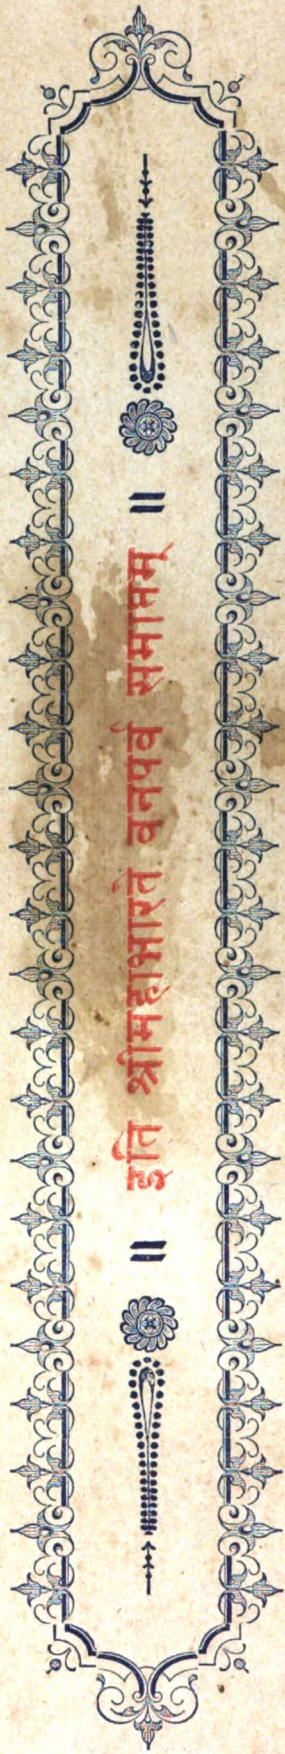 ॥ इति श्रीमहाभारते वनपर्व समाप्तम् ॥